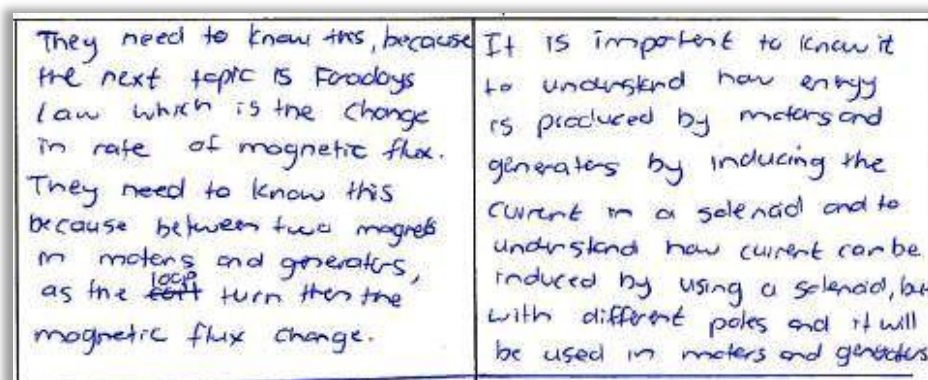 They need to know this, because
the next topic is Faradays
law which is the change
in rate of magnetic flux.
They need to know this
because between two magnets
in motors and generators,
as the loop turn then the
magnetic flux change.
It is important to know it
to understand how energy
is produced by motors and
generators by inducing the
current in a solenoid and to
understand how current can be
induced by using a solenoid, but
with different poles and it will
be used in motors and generators